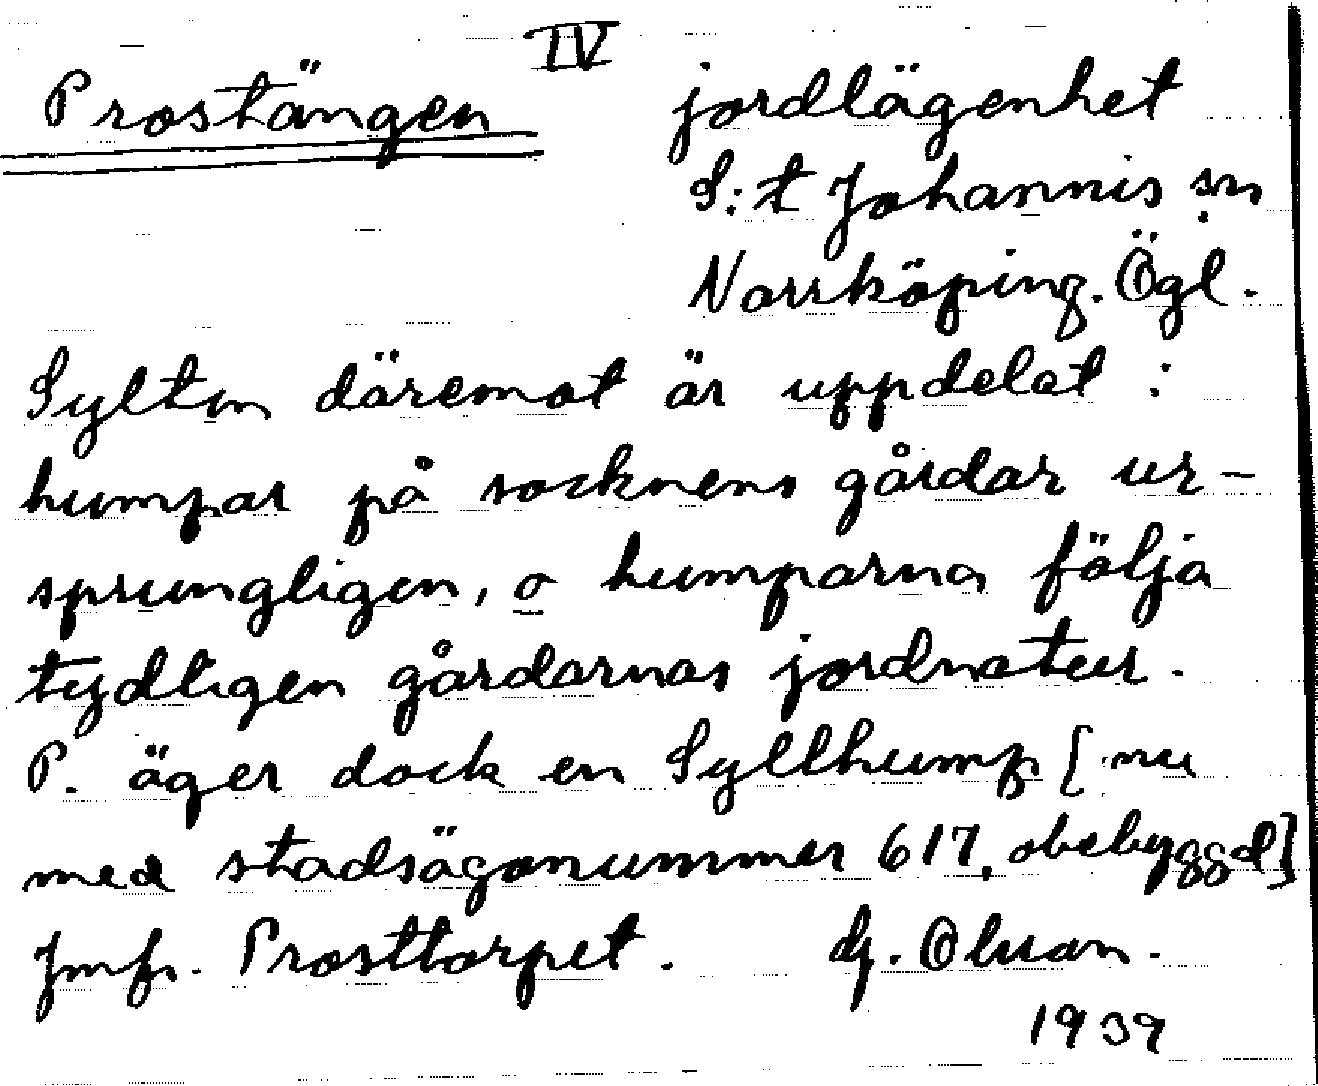 IV
Prostängen jordlägenhet
S:t Johannis sn
Norrköping. Ögl.
Sylten däremot är uppdelat :
humpar på socknens gårdar ur-
sprungligen, o humparna följa
tydligen gårdarnas jordnatur.
P. äger dock en Sylthump [nu
med stadsägonummer 617, obebyggd]
Jmfr. Prosttorpet. Olsson.
1939